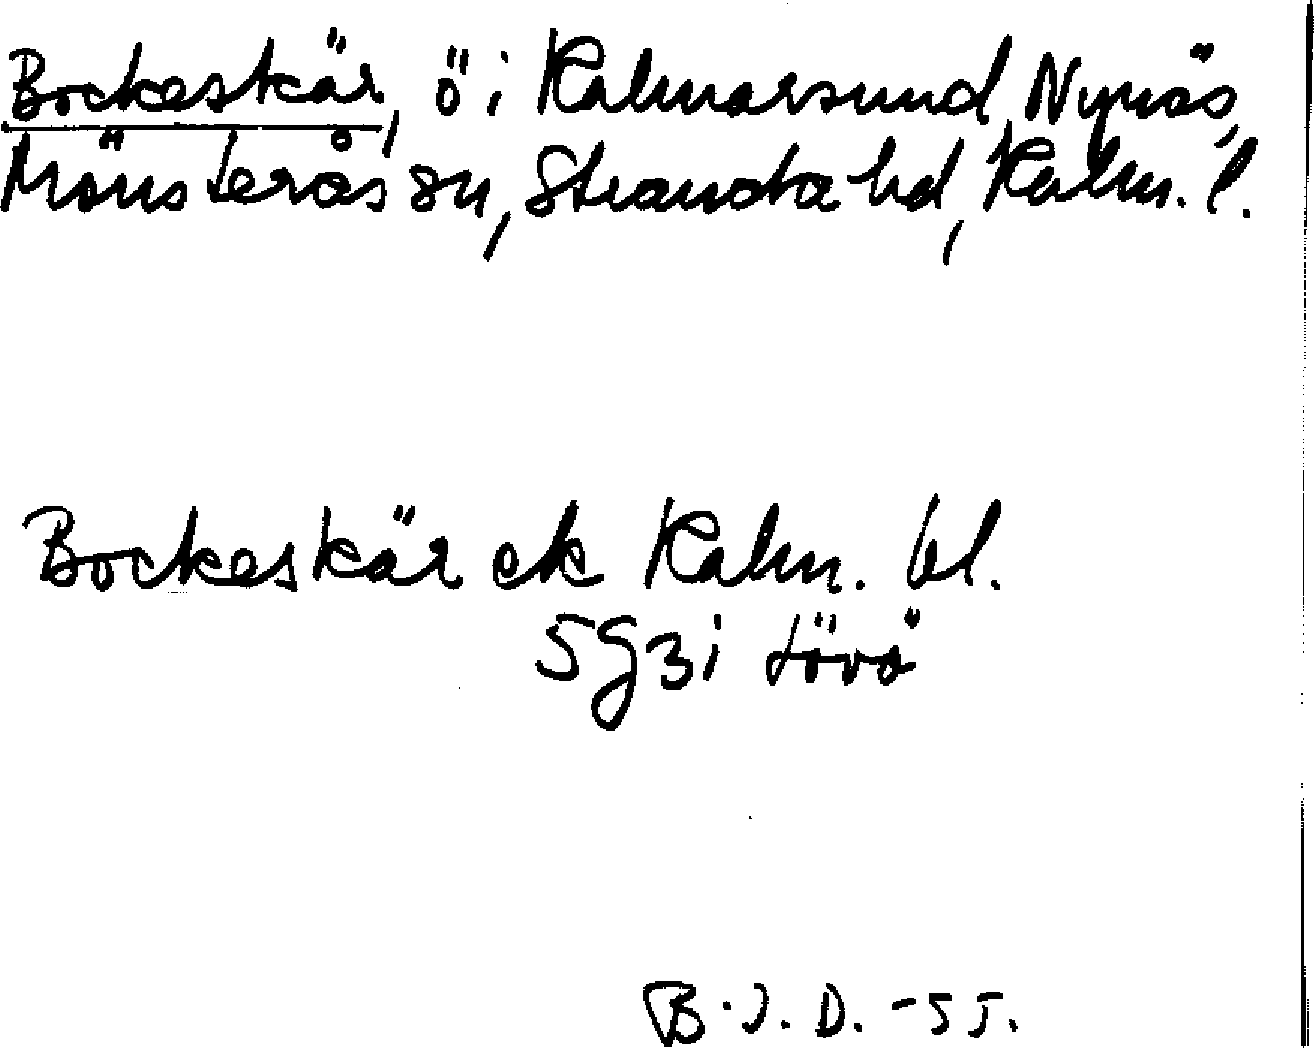 Bockeskär, ö i Kalmarsund, Nynäs,
Mönsterås sn, Stranda hd, Kalm. l.
Bockeskär ek Kalm. bl.
5 g 3 i Lövö
B.J.D. -55.